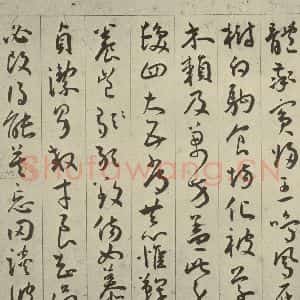 體率賓歸王鳴鳳在
樹白駒食場化被草
木賴及萬方蓋此身
髮四大五常恭惟鞠
養豈敢毀傷女慕
貞潔男效才良知過
必改得能莫忘罔談彼
Shufawang.CN